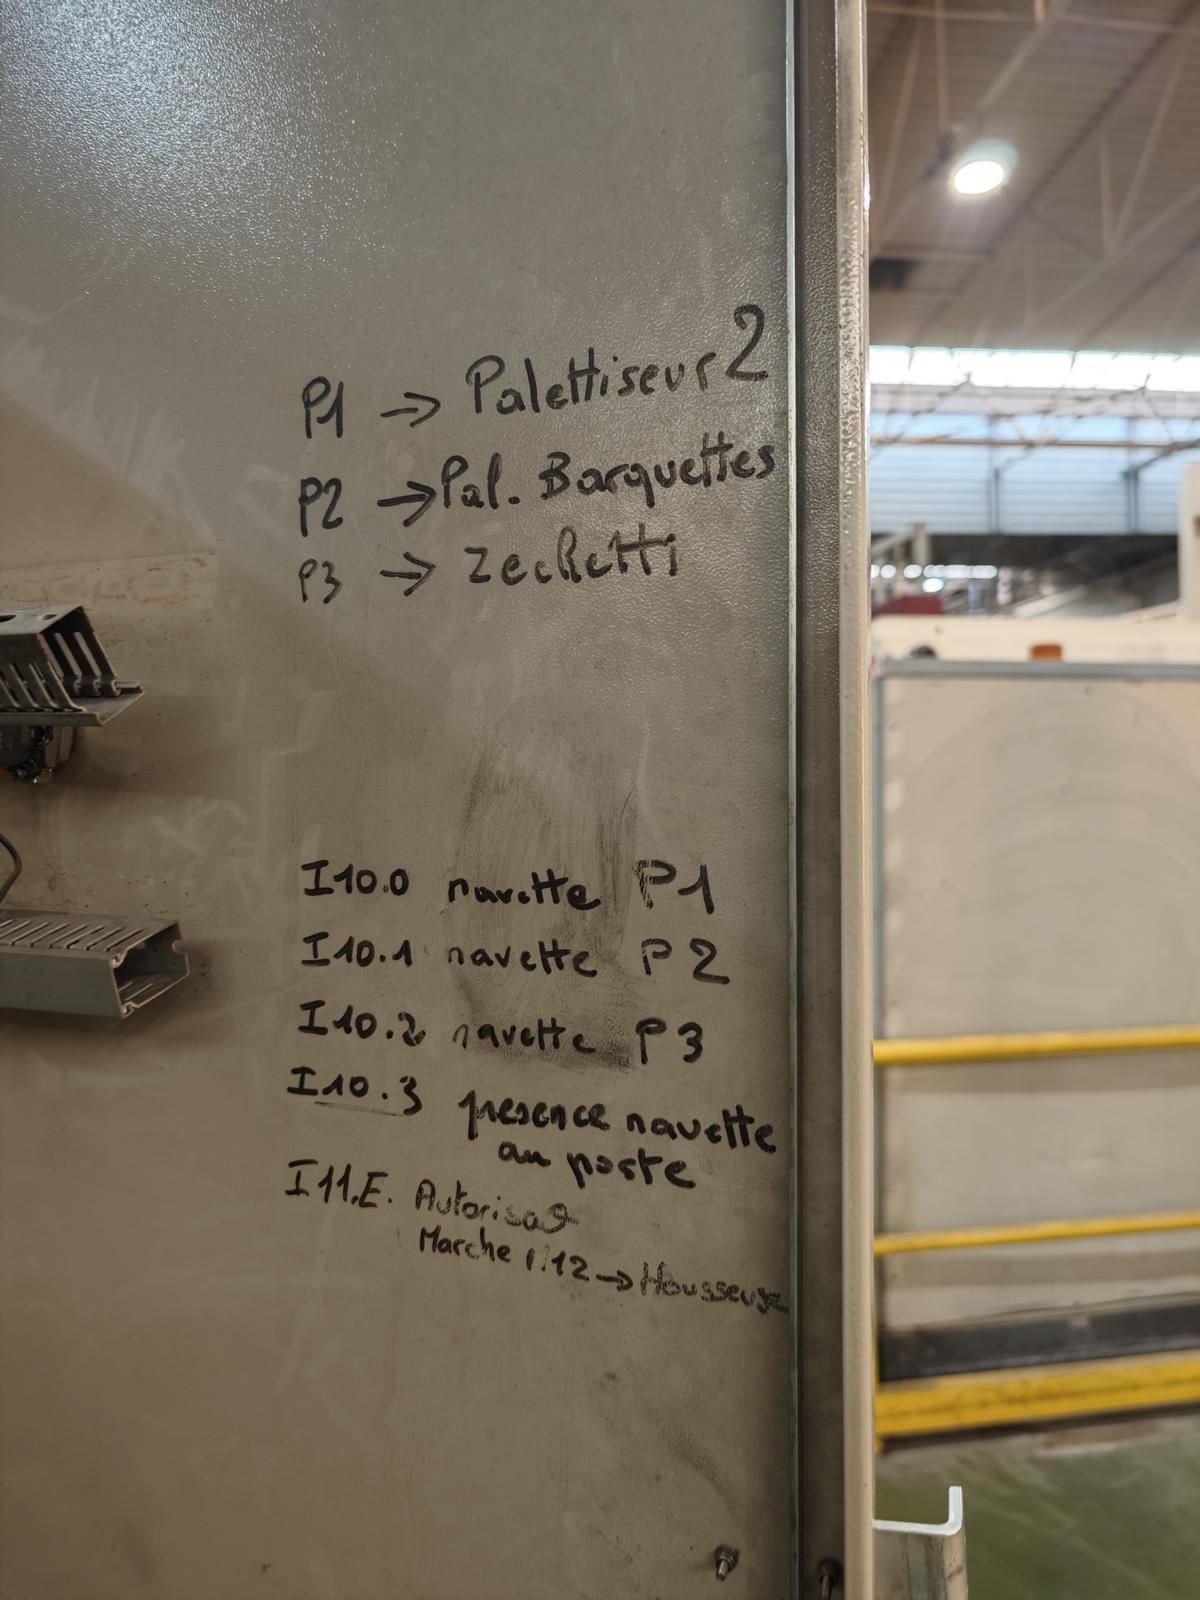 P1 → Palettiseur 2
P2 → Pal. Barquettes
P3 → Zecchetti
I10.0 navette P1
I10.1 navette P2
I10.2 navette P3
I10.3 presence navette
au poste
I11.E. Autorisa
Marche → Housseuse